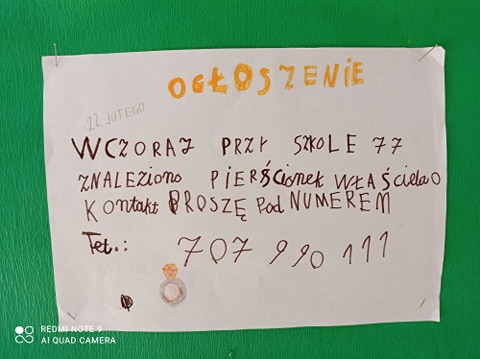 OGŁOSZENIE
22 LUTEGO
WCZORAJ PRZY SZKOLE 77
ZNALEZIONO PIERŚCIONEK WŁAŚCICIELA O
KONTAKT PROSZĘ POD NUMEREM
Tel.: 707 990 111
REDMI NOTE 9
AI QUAD CAMERA